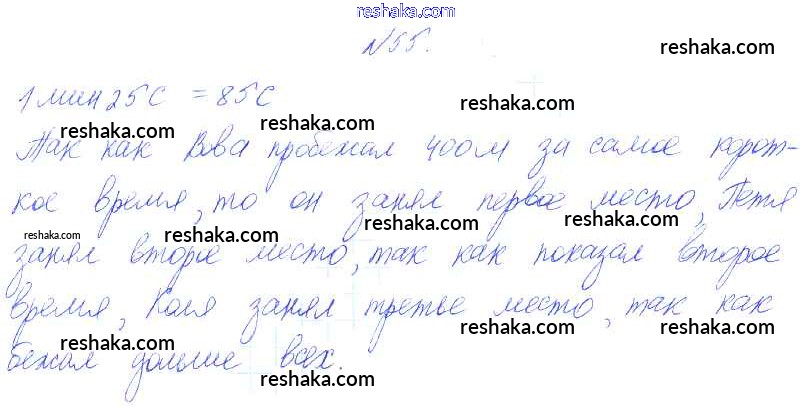 reshaka.com
№55.
reshaka.com
1 мин 25 с = 85 с
reshaka.com
reshaka.com
reshaka.com
Так как Вова пробежал 400 м за самое корот-
reshaka.com
кое время, то он занял первое место, Петя
reshaka.com
reshaka.com
reshaka.com
reshaka.com
занял второе место, так как показал второе
reshaka.com
время, Коля занял третье место, так как
reshaka.com
reshaka.com
бежал дольше всех.
reshaka.com
reshaka.com